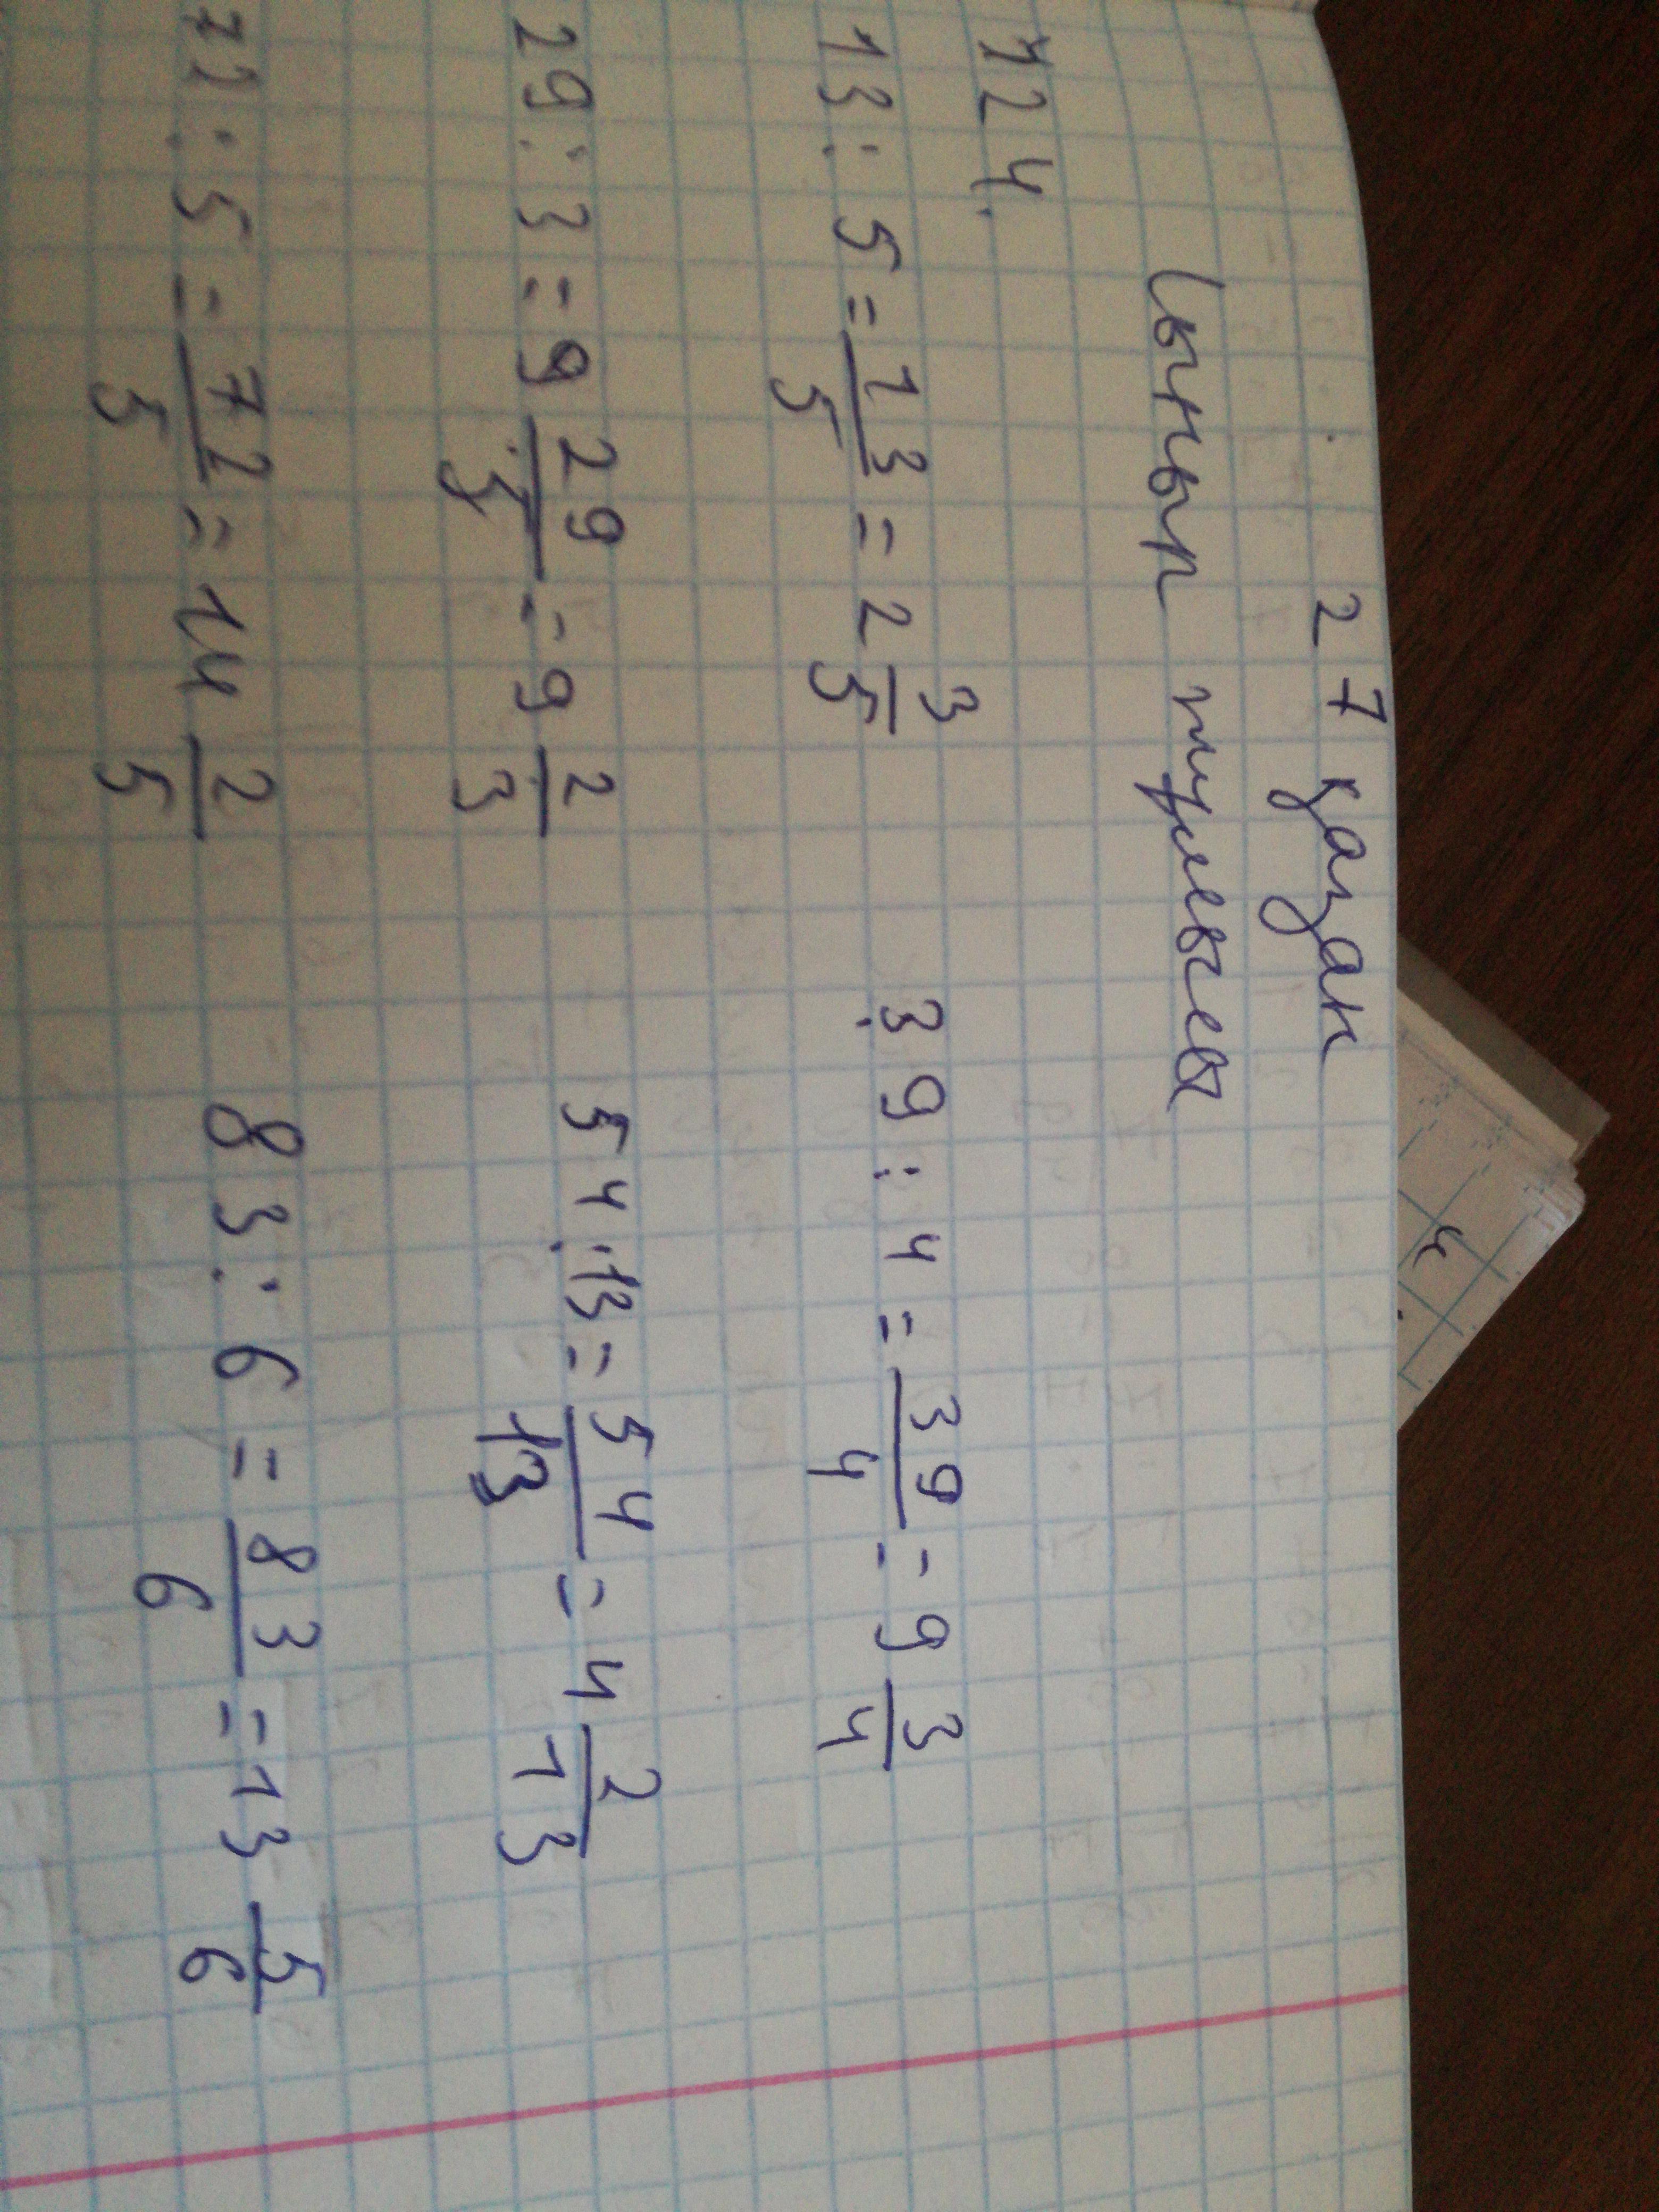 27 қазан
Сынып жұмысы
124.
13 : 5 = 13/5 = 2 3/5    39 : 4 = 39/4 = 9 3/4
29 : 3 = 9 29/3 = 9 2/3    54 : 13 = 54/13 = 4 2/13
72 : 5 = 72/5 = 14 2/5    83 : 6 = 83/6 = 13 5/6